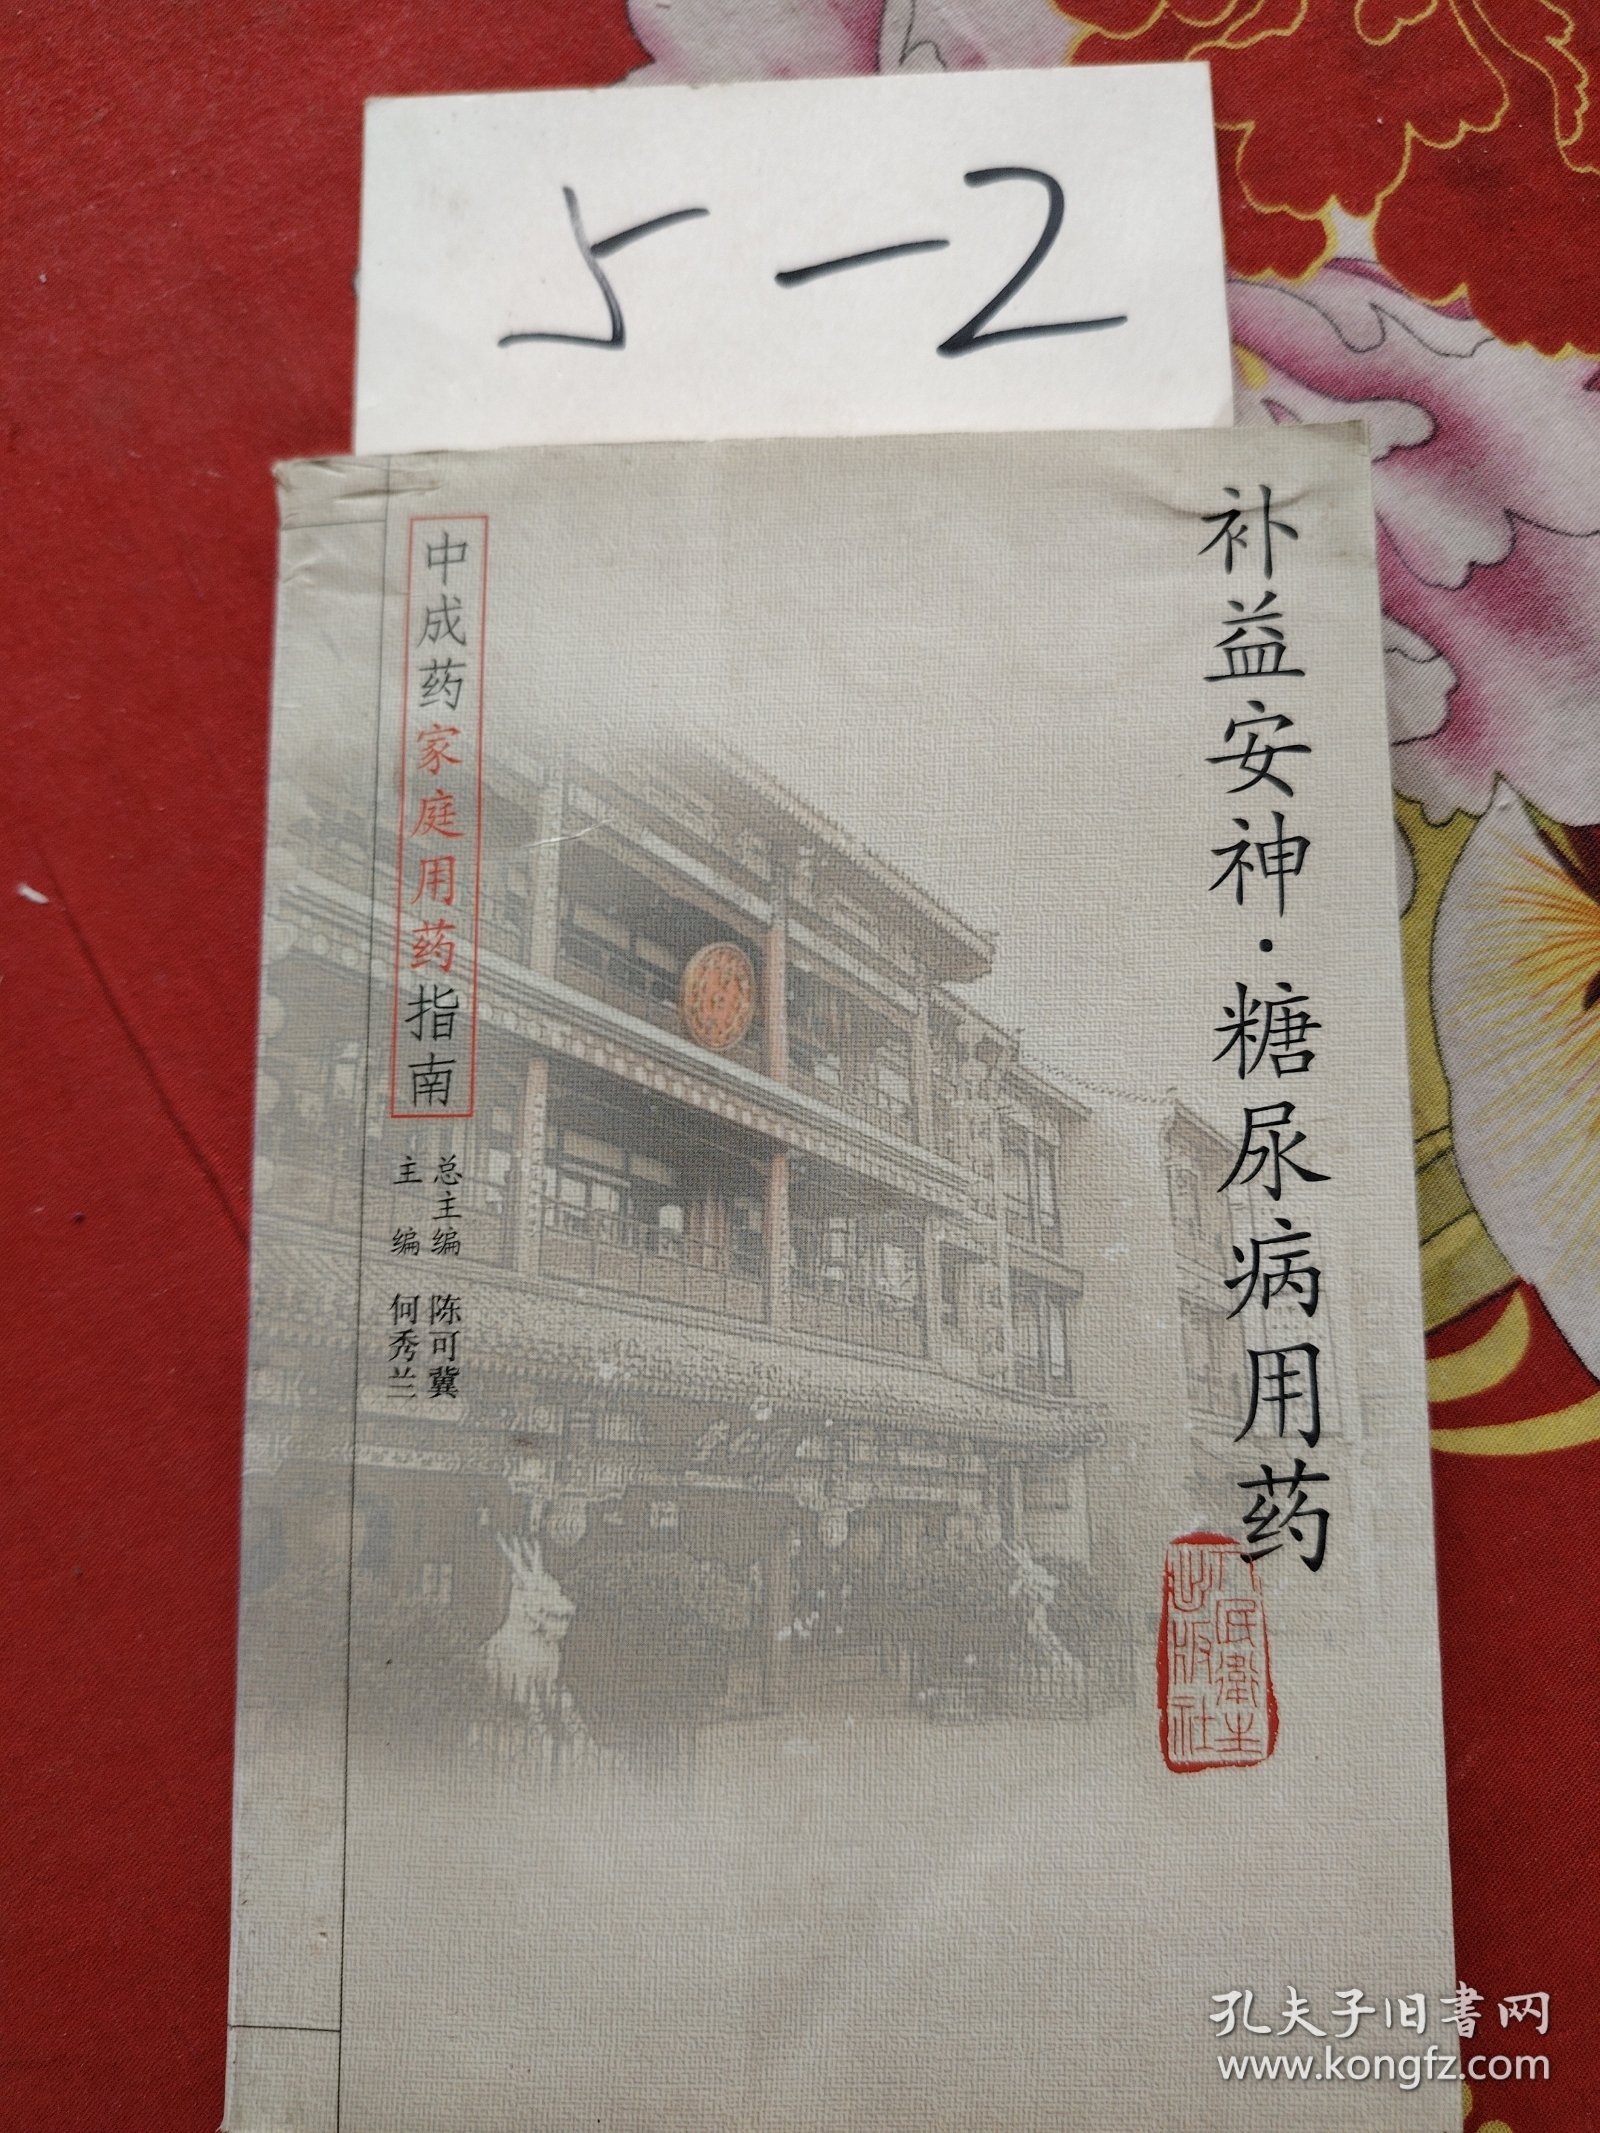 5-2
补益安神·糖尿病用药
中成药家庭用药指南
总主编 陈可冀
主编 何秀兰
人民卫生
出版社
孔夫子旧书网
www.kongfz.com